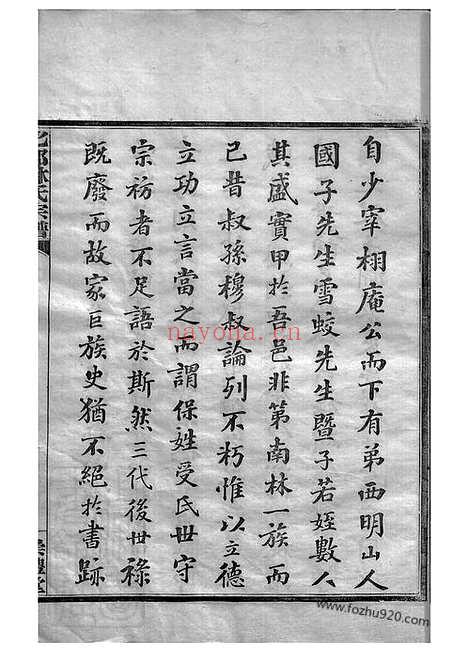 自少宰栩庵公而下有弟西明山人
國子先生雪蛟先生暨子若姪數人
其盛實甲於吾邑非第南林一族而
已昔叔孫穆叔論列不朽惟以立德
立功立言當之而謂保姓受氏世守
宗祊者不足語於斯然三代後世祿
既廢而故家巨族史猶不絕於書跡
林氏宗譜
nayona.cn
www.fozhu920.com